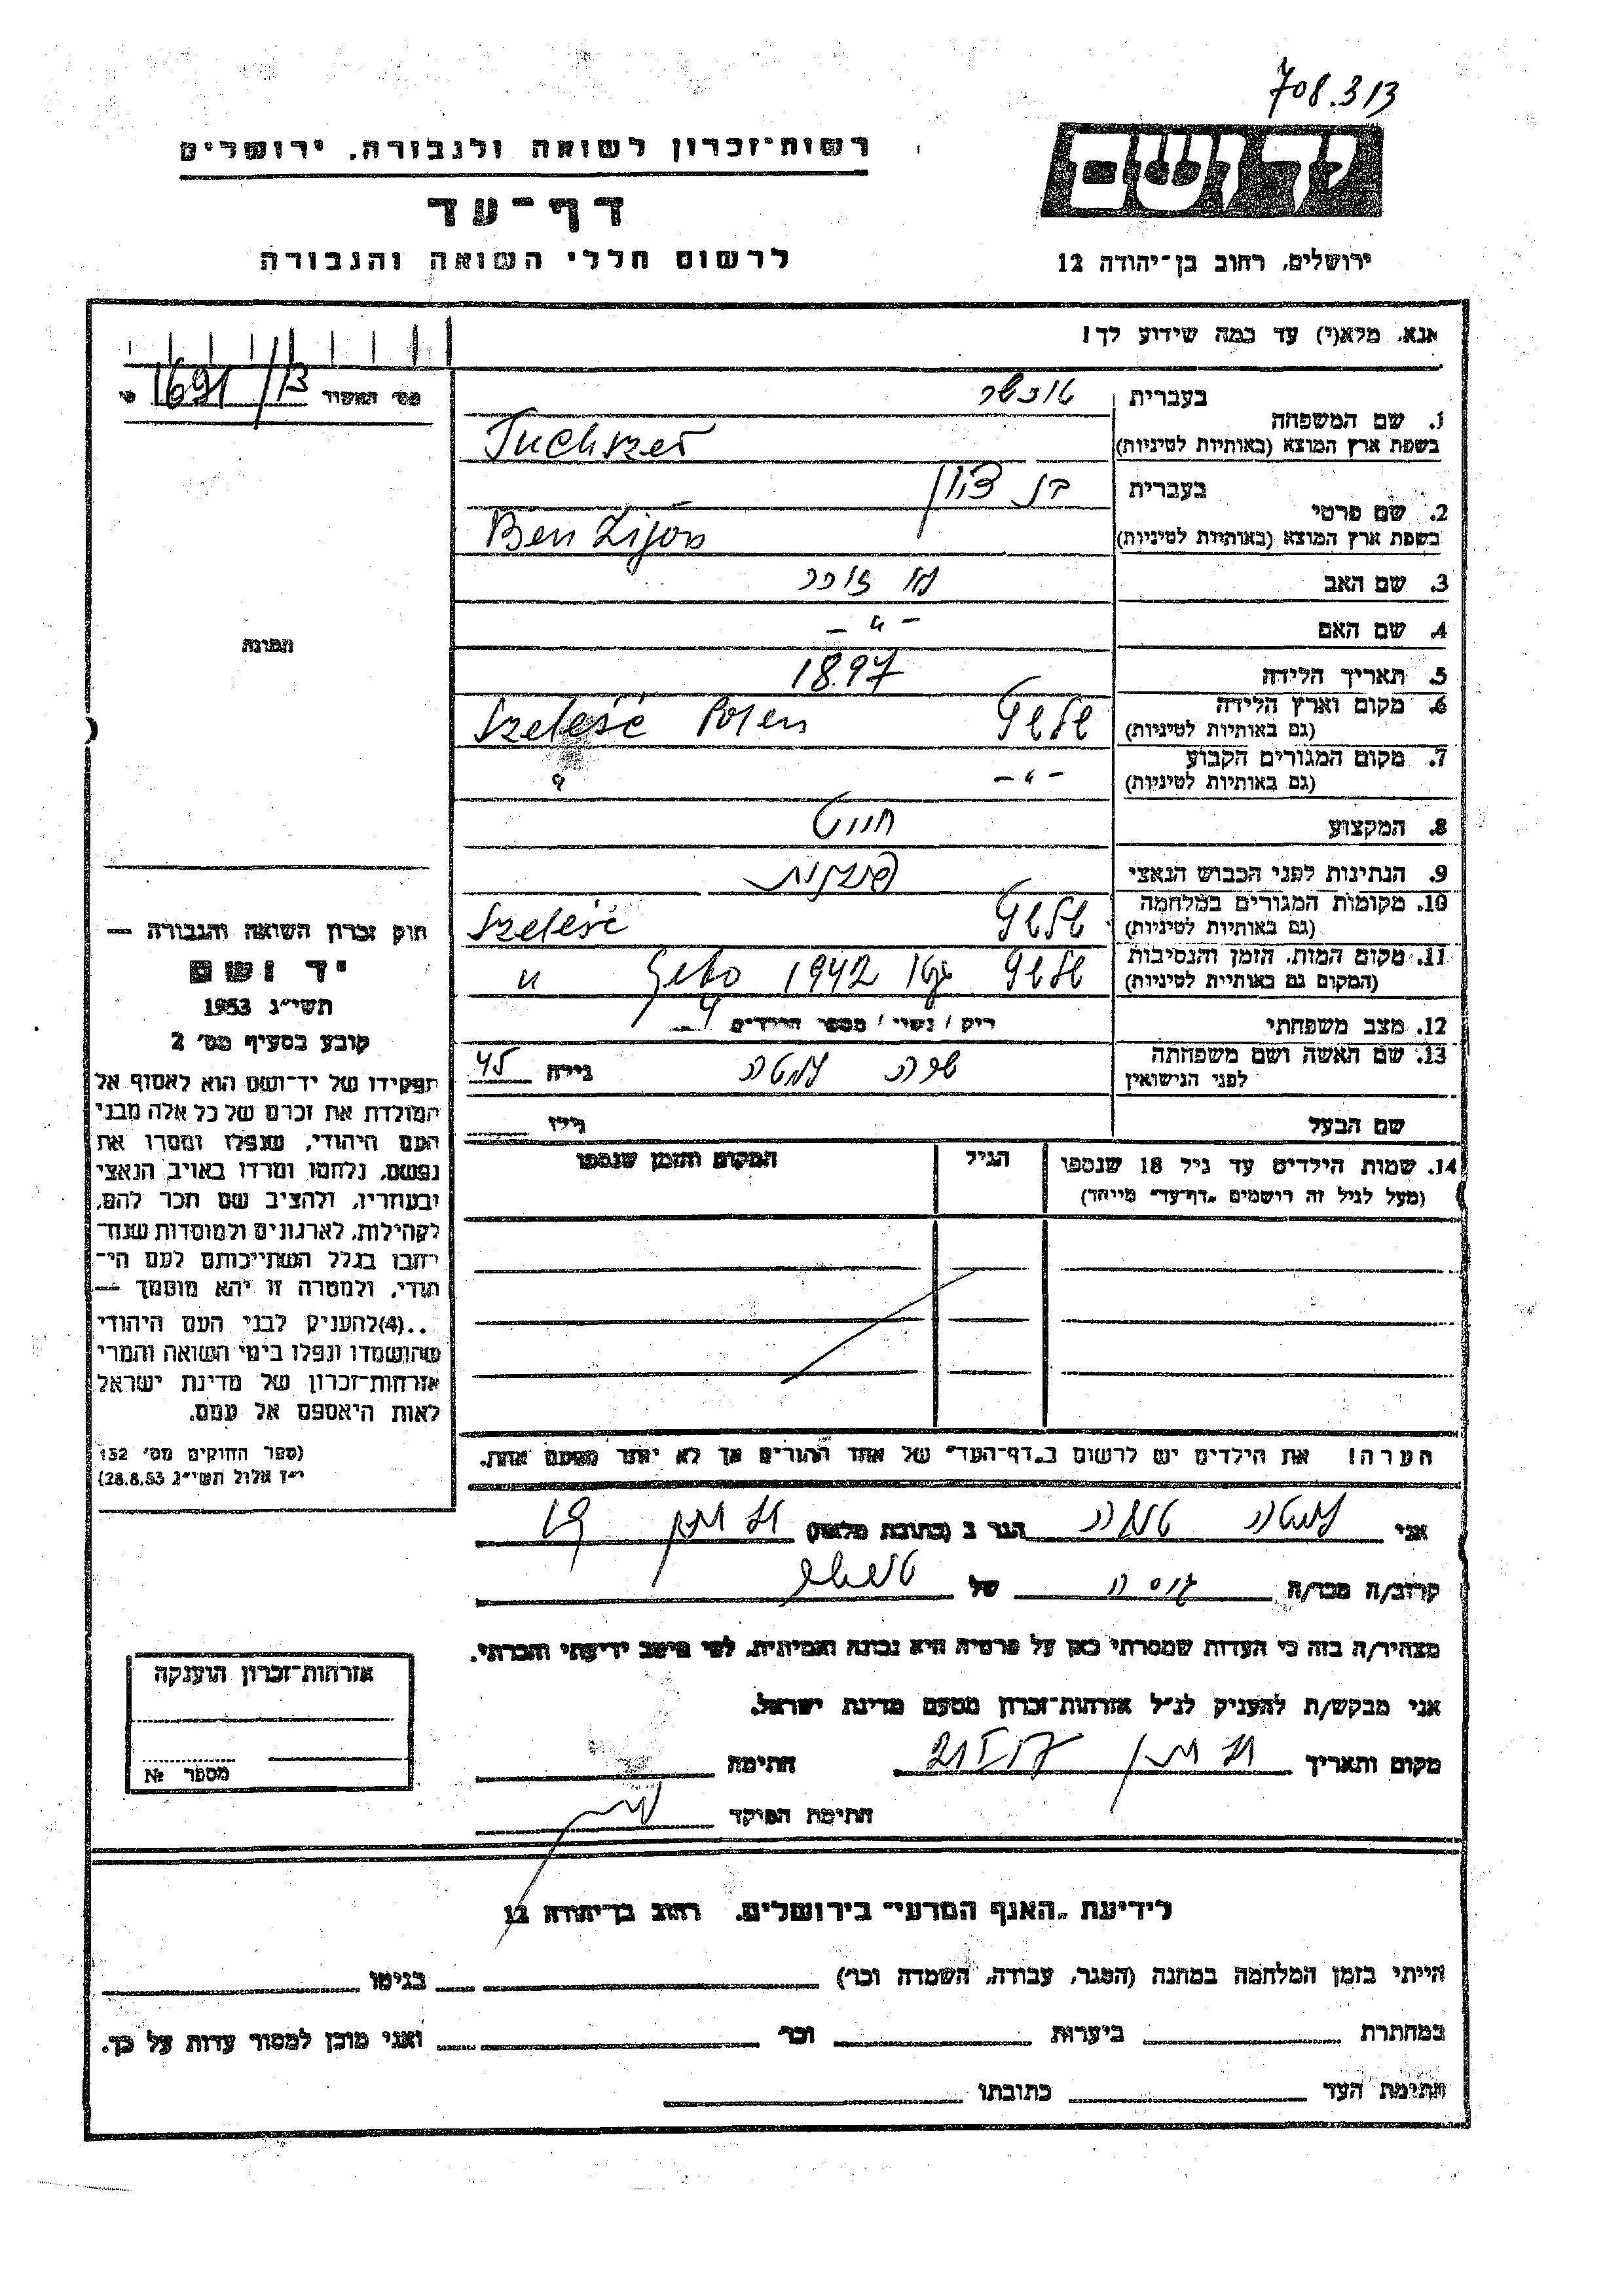 708.313
רשות־זכרון לשואה ולגבורה, ירושלים
יד ושם
דף־עד
לרשום חללי השואה והגבורה
ירושלים, רחוב בן־יהודה 12
אנא, מלא(י) עד כמה שידוע לך!
מס׳ האשור 1691/13
1. שם המשפחה בעברית
בשפת ארץ המוצא (באותיות לטיניות) Tuchszer
2. שם פרטי בעברית בן ציון
בשפת ארץ המוצא (באותיות לטיניות) Ben Zijon
3. שם האב לא זוכר
4. שם האם - " -
5. תאריך הלידה 1897
6. מקום וארץ הלידה
(גם באותיות לטיניות) Szeleść Polen
7. מקום המגורים הקבוע
(גם באותיות לטיניות) - " - "
8. המקצוע חייט
9. הנתינות לפני הכבוש הנאצי פולנית
10. מקומות המגורים במלחמה
(גם באותיות לטיניות) Szeleść
11. מקום המות, הזמן והנסיבות
(המקום גם באותיות לטיניות) 1942 Geto "
12. מצב משפחתי ריק / נשוי / מספר הילדים 4
13. שם האשה ושם משפחתה
לפני הנישואין שרה גילה 45
שם הבעל גילו
תמונה
14. שמות הילדים עד גיל 18 שנספו הגיל המקום והזמן שנספו
(מעל לגיל זה רושמים "דף־עד" מיוחד)
הערה! את הילדים יש לרשום ב"דף־העד" של אחד ההורים אך לא יותר מפעם אחת.
חוק זכרון השואה והגבורה —
יד ושם
תשי״ג 1953
קובע בסעיף מס׳ 2
תפקידו של יד־ושם הוא לאסוף אל
המולדת את זכרם של כל אלה מבני
העם היהודי, שנפלו ומסרו את
נפשם, נלחמו ומרדו באויב הנאצי
ובעוזריו, ולהציב שם וזכר להם,
לקהילות, לארגונים ולמוסדות שנח־
רבו בגלל השתייכותם לעם הי־
הודי, ולמטרה זו יהא מוסמך —
...(4) להעניק לבני העם היהודי
שהושמדו ונפלו בימי השואה והמרי
אזרחות־זכרון של מדינת ישראל
לאות היאספם אל עמם.
(ספר החוקים מס׳ 132
י״ז אלול תשי״ג 28.8.53)
אני הגר ב (כתובת מלאה)
קרוב/ה מכר/ה גיסה של
מצהיר/ה בזה כי העדות שמסרתי כאן על פרטיה היא נכונה ואמיתית, לפי מיטב ידיעתי והכרתי.
אני מבקש/ת להעניק לנ״ל אזרחות־זכרון מטעם מדינת ישראל.
מקום ותאריך חתימה
חתימת הפוקד
אזרחות־זכרון הוענקה
מספר №
לידיעת "האגף המדעי" בירושלים, רחוב בן־יהודה 12
הייתי בזמן המלחמה במחנה (הסגר, עבודה, השמדה וכו׳) בגיטו
במחתרת ביערות וכו׳ ואני מוכן למסור עדות על כך.
חתימת העד כתובתו